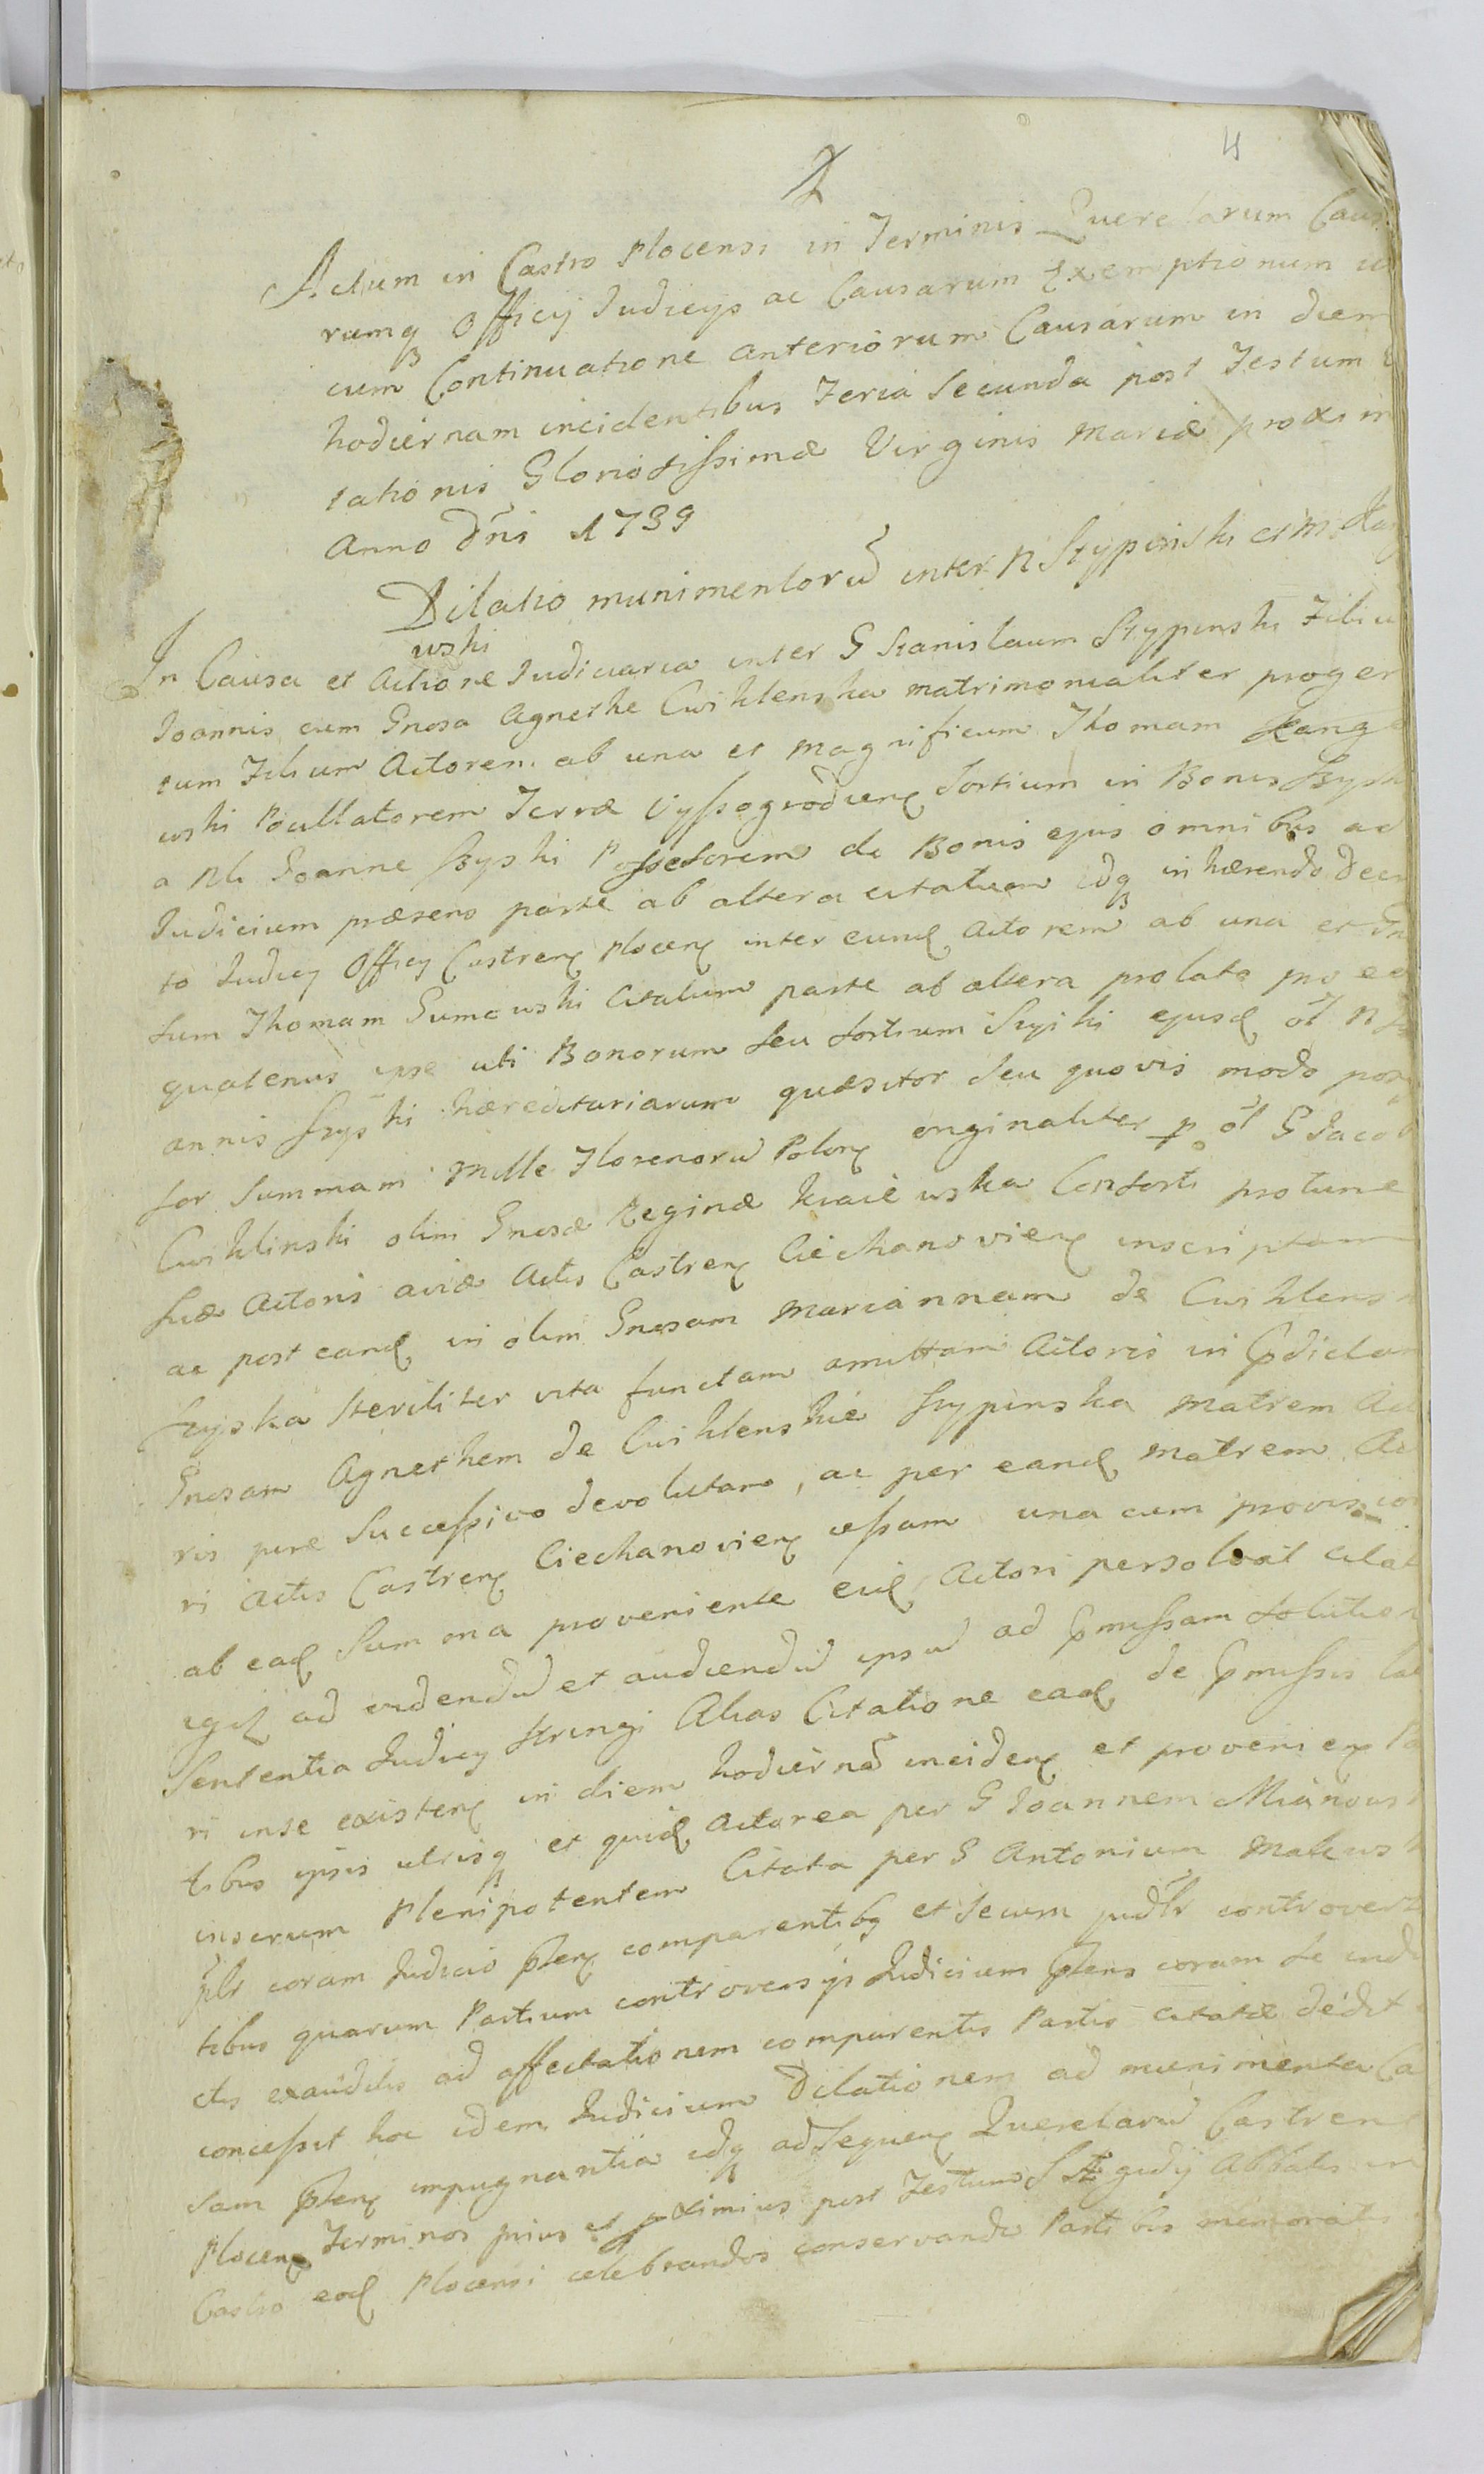 4
Actum in Castro Plocensi in Terminis Querelarum Caus
rumq Officij Judicys ac Causarum Exemptionum
cum Continuatione anteriorum Causarum in diem
hodiernam incidentibus Feria Secunda post Festum
tationis Gloriosissimæ Virginis Mariæ proxim
Anno Dni 1739
Dilatio munimentorū inter N Stypinski et M Kan
wski
In Causa et Actione Judiciaria inter G Stanislaum Stypinski Filiu
Joannis cum Gnosa Agnethe Cwiklenska matrimonialiter progen
tum Filium Actorem ab una et Magnificum Thomam Kang
wski Pocillatorem Terræ Vyssogrodien Sortium in Bonis Szysk
a Nli Joanne Szyski Possessorem de Bonis ejus omnibus ad
Judicium præsens parte ab altera citatum idq inhærendo Decre
to Judicy Officy Castren Plocen inter eund Actorem ab una et Gn
sum Thomam Gumowski Citatum parte ab altera prolato pro eo
quatenus ipse uti Bonorum seu sortium Szyski ejusd ol N Jo
annis Szyski hæreditariarum quæsitor seu quovis modo poss
sor Summam Mille Florenorū Polon originaliter p ol G Jacob
Cwiklinski olim Gnosæ Reginæ Kraiewska Consorti protunc
suæ Actoris aviæ Actis Castren Ciechanovien inscriptam
ac post eand in olim Gnosam Mariannam de Cwiklens
Szyska steriliter vita functam amittam Actoris in Pdictam
Gnosam Agnethem de Cwiklenskie Stypinska Matrem Act
ris jure Successivo devolutam, ac per eand Matrem Ac
ri Actis Castren Ciechanovien cessam una cum provisio
ab ead Summa proveniente eid Actori persolvat citat
igd ad videndū et audiendū ipsū ad Pmissam solution
Sententia Judicy stringi Alias Citatione ead de Pmissis lat
ri inse existen in diem hodiernā inciden et provenien Pa
tibus ipsis utrisq et quid Actorea per G Joannem Mianows
inserum Plenipotentem Citata per G Antonium Makows
plr coram Judicio Pten comparentibq et secum judlr controvert
tibus quarum Partium controversys Judicium Ptens coram se indu
ctis exauditis ad affectationem comparentis Partis citatæ dedit
concessit hoc idem Judicium Dilationem ad munimenta Ca
sam Pten impugnantia idq ad Sequen Querelarū Castren
Plocen Terminos prius et proximius post Festum S Ægidij Abbatis in
Castro eod Plocensi celebrandos conservando Partibus memoratis